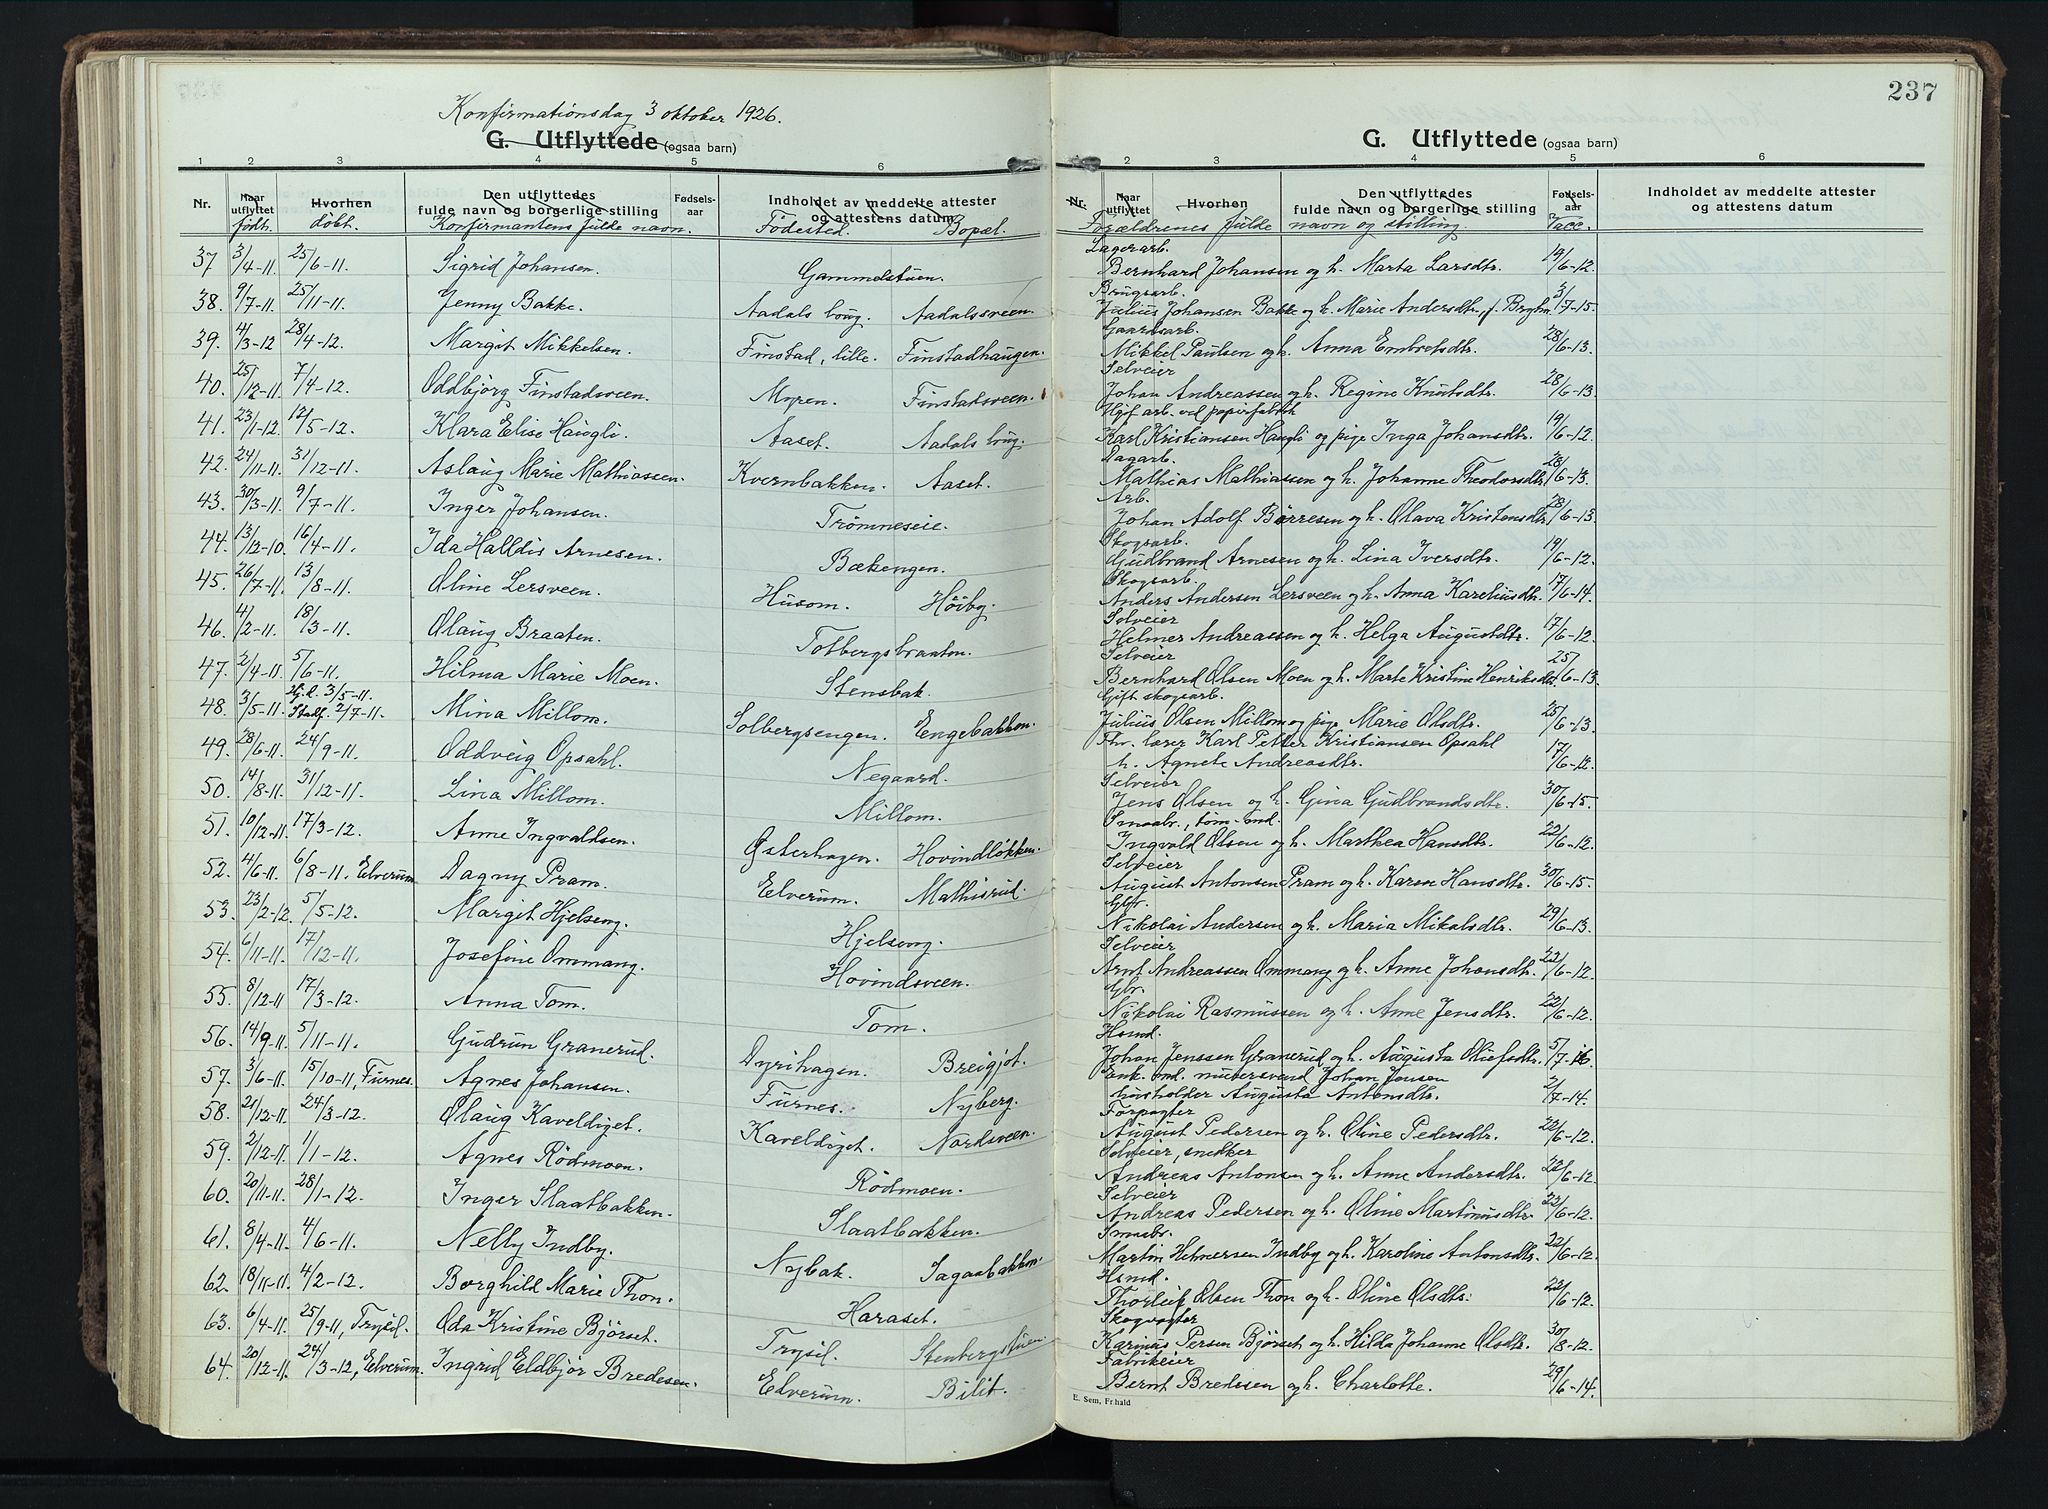 Konfirmationsdag 3 oktober 1926.
G. Utflyttede (ogsaa barn)
1 2 3 4 5 6
Nr. Naar utflyttet Hvorhen Den utflyttedes fulde navn og borgerlige stilling Fødsels-aar Indholdet av meddelte attester og attestens datum
født. döbt. Konfirmantens fulde navn. Födested. Bopæl.
37 3/4-11. 25/6-11. Sigrid Johansen. Gammelstuen.
38. 9/7-11. 25/11-11. Jenny Bakke. Aadals brug. Aadalsveen.
39. 4/3-12 28/4-12. Margit Mikkelsen. Finstad, lille. Finstadhaugen.
40. 25/12-11. 7/4-12. Oddbjörg Finstadsveen. Myren. Finstadsveen.
41. 23/1-12. 12/5-12. Klara Elise Haugli. Aaset. Aadals brug.
42. 24/11-11. 31/12-11. Aslaug Marie Mathiassen. Kvernbakken. Aaset.
43. 30/3-11. 9/7-11. Inger Johansen. Trömneseie.
44. 13/12-10. 16/4-11. Ida Halldis Arnesen. Bækengen.
45. 26/7-11. 13/8-11. Oline Lersveen. Husom. Höiby.
46. 4/2-11. 18/3-11. Olaug Braaten. Totbergsbraaton.
47. 2/4-11. 5/6-11. Hilma Marie Moen. Stensbak.
48. 3/5-11. Hjd. 3/5-11. Stadf. 2/7-11. Mina Millom. Solbergsengen. Engebakken.
49. 28/6-11. 24/9-11. Oddveig Opsahl. Negaard.
50. 14/8-11. 31/12-11. Lina Millom. Millom.
51. 10/12-11. 17/3-12. Anne Ingvaldsen. Østerhagen. Hovindløkken.
52. 4/6-11. 6/8-11. Elverum Dagny Pram. Elverum. Mathisrud.
53. 23/2-12. 5/5-12. Margit Hjelseng. Hjelseng.
54. 6/11-11. 17/12-11. Josefine Ommang. Hovindsveen.
55. 8/12-11 17/3-12. Anna Tom. Tom.
56. 14/9-11. 5/11-11. Gudrun Granerud. Dyrihagen. Breigjot.
57. 3/6-11. 15/10-11, Furnes. Agnes Johansen. Furnes. Nyberg.
58. 21/12-11. 24/3-12. Olaug Kaveldiget. Kaveldiget. Nordsveen.
59. 2/12-11. 1/1-12. Agnes Rödmoen. Rödmoen.
60. 20/11-11. 28/1-12. Inger Slaatbakken. Slaatbakken.
61. 8/4-11. 4/6-11. Nelly Indby. Nybak. Sagaabakken.
62. 18/11-11. 4/2-12. Borghild Marie Thon. Haraset.
63. 6/4-11. 25/9-11, Trysil. Oda Kristine Bjørset. Trysil. Stenbergstuen.
64. 20/12-11. 24/3-12, Elverum. Ingrid Eldbjør Bredesen. Elverum. Bilit.
237
G. Utflyttede (ogsaa barn)
2 3 4 5 6
Nr. Naar utflyttet Hvorhen Den utflyttedes fulde navn og borgerlige stilling Fødsels-aar Indholdet av meddelte attester og attestens datum
Forældrenes fulde navn og stilling. Vacc.
Lagerarb.
Bernhard Johansen og h. Marta Larsdtr. 19/6-12.
Brugsarb.
Julius Johansen Bakke og h. Marie Andersdtr., f. 3/7-15.
Gaardsarb.
Mikkel Paulsen og h. Anna Embretsdtr. 28/6-13.
Selveier
Johan Andreassen og h. Regine Knutsdtr. 28/6-13
arb. ved papirfabrik
Karl Kristiansen Haugli og pige Inga Johansdtr. 19/6-12.
Dagarb.
Mathias Mathiassen og h. Johanne Theodorsdtr. 28/6-13.
Arb.
Johan Adolf Børresen og h. Olava Kristensdtr. 28/6-13.
Skogsarb.
Gudbrand Arnesen og h. Lina Iversdtr. 19/6-12.
Skogsarb.
Anders Andersen Lersveen og h. Anna Kareliusdtr. 17/6-14.
Selveier
Helmer Andreassen og h. Helga Augustdtr. 17/6-12.
Selveier
Bernhard Olsen Moen og h. Marte Kristine Henriksdtr. 25/6-13.
Gift skogsarb.
Julius Olsen Millom og pige Marie Olsdtr. 25/6-13.
Fhv. lærer Karl Petter Kristiansen Opsahl
h. Agnete Andreasdtr. 17/6-12.
Selveier
Jens Olsen og h. Gina Gudbrandsdtr. 30/6-15.
Smaabr., tøm-md.
Ingvald Olsen og h. Marthea Hansdtr. 22/6-12.
Selveier
August Antonsen Pram og h. Karen Hansdtr. 30/6-15.
Gbr.
Nikolai Andersen og h. Maria Mikalsdtr. 29/6-13.
Selveier
Arnt Andreassen Ommang og h. Anne Johansdtr. 22/6-12.
Gbr.
Nikolai Rasmussen og h. Anne Jensdtr. 22/6-12.
Hsmd.
Johan Jenssen Granerud og h. Augusta Oliefsdtr. 5/7-16
Enk. md. mutersvend Johan Jensen
husholder Augusta Antonsdtr. 2/7-14.
Forpagter
August Pedersen og h. Oline Pedersdtr. 22/6-12.
Selveier, snekker
Andreas Antonsen og h. Anne Andersdtr. 22/6-12.
Selveier
Andreas Pedersen og h. Oline Martinusdtr. 22/6-12.
Smabr.
Martin Helmersen Indby og h. Karoline Antonsdtr. 22/6-12.
Hsmd.
Thorleif Olsen Thon og h. Oline Olsdtr. 22/6-12.
Skogvogter
Karinus Persen Bjørset og h. Hilda Johanne Olsdtr. 30/8-12.
Fabrikeier
Bernt Bredesen og h. Charlotte. 29/6-14.
E. Sem, Fr.hald